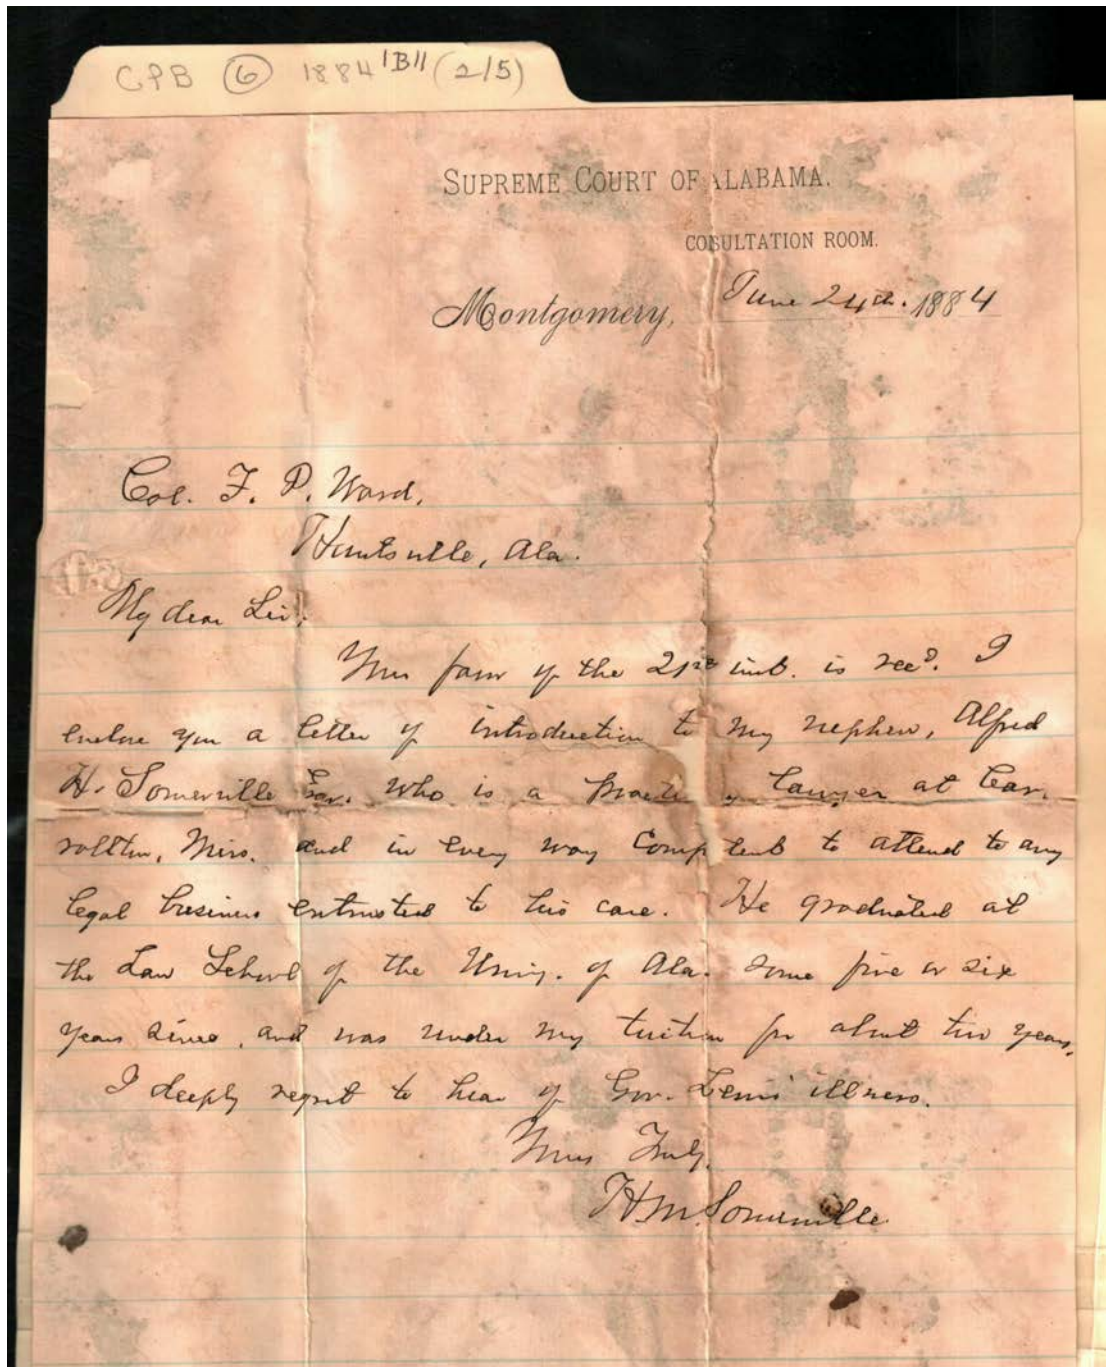 CPB 6 1884 "B" (2/5)
SUPREME COURT OF ALABAMA.
COSULTATION ROOM.
Montgomery, June 24th. 1884
Col. F. P. Ward,
Huntsville, Ala.
My dear Sir;
Your favor of the 21st inst. is recd. I
enclose you a letter of introduction to my nephew, Alfred
H. Somerville Esq. who is a lawyer at Car-
rollton, Miss. and in every way competent to attend to any
legal business entrusted to his care. He graduated at
the Law School of the Univ. of Ala. some five or six
years since, and was under my tuition for about two years.
I deeply regret to hear of Gov. Lewis' illness.
Yours Truly,
H.M. Somerville